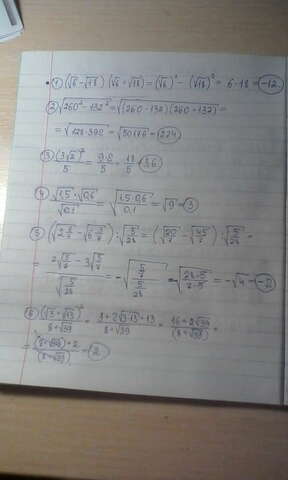 1) (√6 - √18)(√6 + √18) = (√6)² - (√18)² = 6 - 18 = -12
2) √260² - 132² = √(260 - 132)(260 + 132) =
= √128 · 392 = √50176 = 224
3) (3√2)²/5 = 9·2/5 = 18/5 = 3,6
4) √1,5 · √0,6 / √0,1 = √1,5 · 0,6 / 0,1 = √9 = 3
= 2√5/7 - 3√5/7 / √5/28 = -√5/7 / 5/28 = -√28·5/7·5 = -√4 = -2
6) (√3 + √13)²/8 + √39 = 3 + 2√3·13 + 13/8 + √39 = 16 + 2√39/(8 + √39) =
= (8 + √39) · 2/(8 + √39) = 2